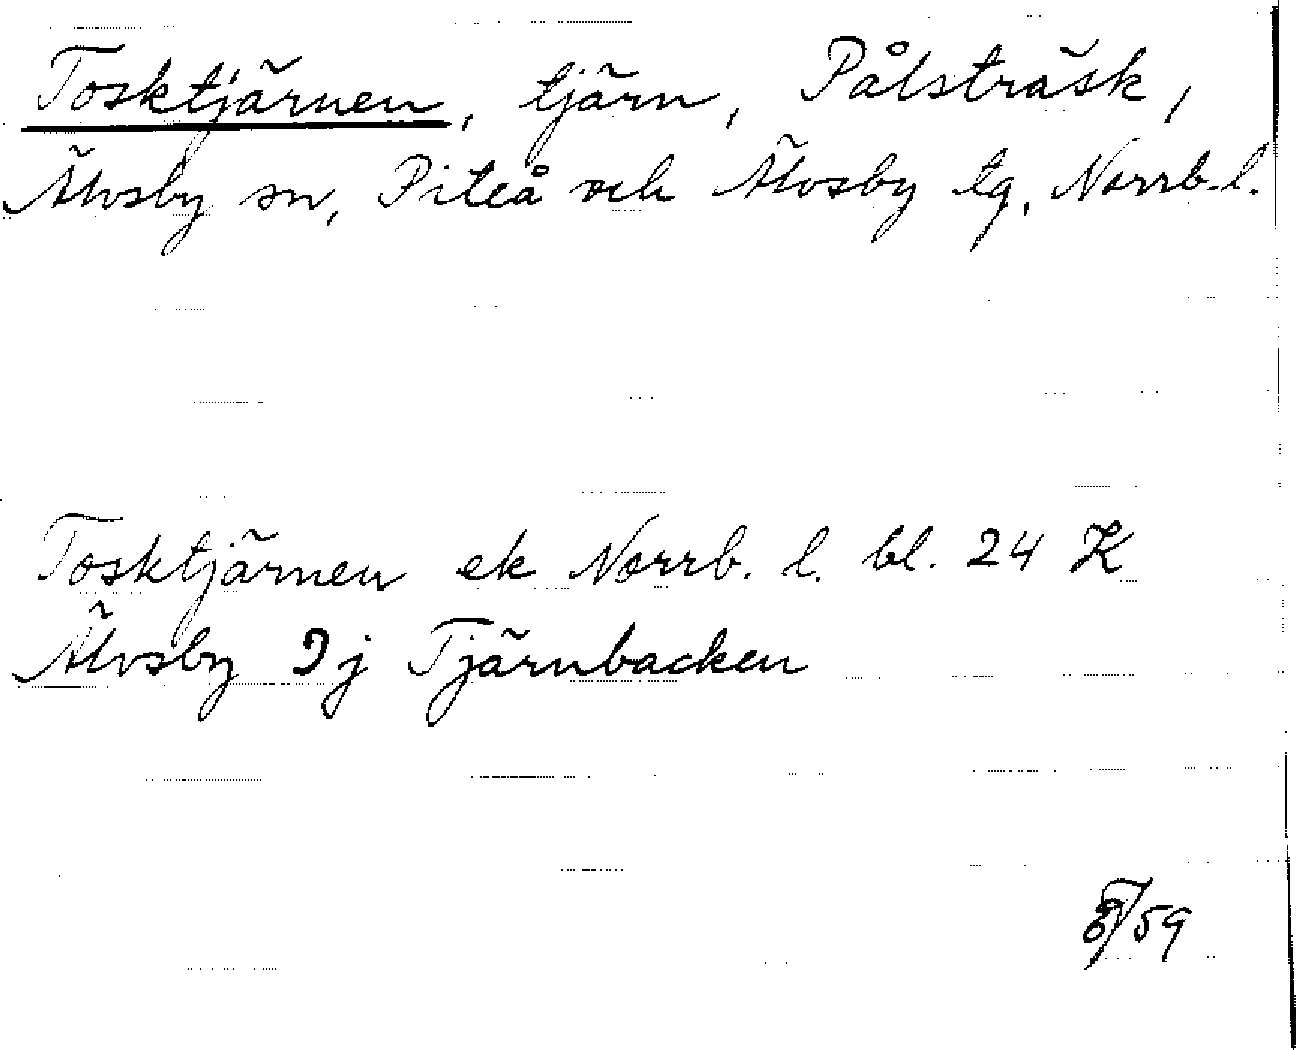 Tosktjärnen, tjärn, Pålsträsk,
Älvsby sn, Piteå och Älvsby tg, Norrb. l.
Tosktjärnen ek Norrb. l. bl. 24 K
Älvsby 9j Tjärnbacken
/59